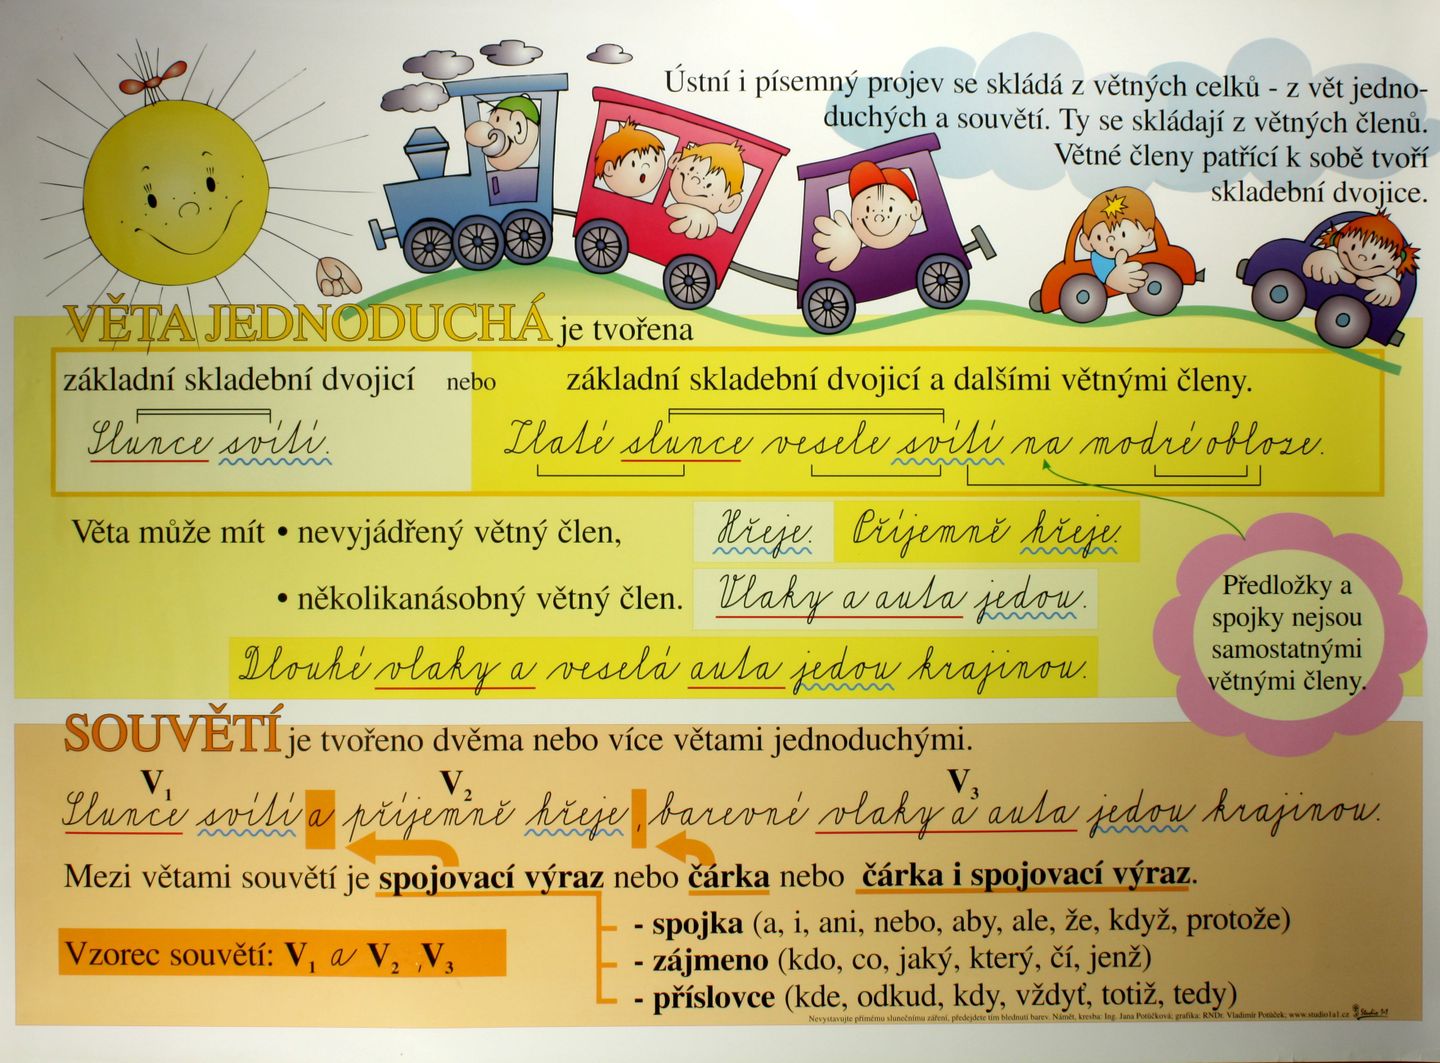 Ústní i písemný projev se skládá z větných celků - z vět jedno-
duchých a souvětí. Ty se skládají z větných členů.
Větné členy patřící k sobě tvoří
skladební dvojice.
VĚTA JEDNODUCHÁ je tvořena
základní skladební dvojicí nebo základní skladební dvojicí a dalšími větnými členy.
Slunce svítí. Zlaté slunce vesele svítí na modré obloze.
Věta může mít • nevyjádřený větný člen, Hřeje. Příjemně hřeje.
• několikanásobný větný člen. Vlaky a auta jedou.
Dlouhé vlaky a veselá auta jedou krajinou.
Předložky a
spojky nejsou
samostatnými
větnými členy.
SOUVĚTÍ je tvořeno dvěma nebo více větami jednoduchými.
V1 V2 V3
Slunce svítí a příjemně hřeje, barevné vlaky a auta jedou krajinou.
Mezi větami souvětí je spojovací výraz nebo čárka nebo čárka i spojovací výraz.
- spojka (a, i, ani, nebo, aby, ale, že, když, protože)
Vzorec souvětí: V1 a V2 , V3
- zájmeno (kdo, co, jaký, který, čí, jenž)
- příslovce (kde, odkud, kdy, vždyť, totiž, tedy)
Nevystavujte přímému slunečnímu záření, předejdete tím blednutí barev. Námět, kresba: Ing. Jana Potůčková; grafika: RNDr. Vladimír Potůček; www.studio1a1.cz Studio 1+1